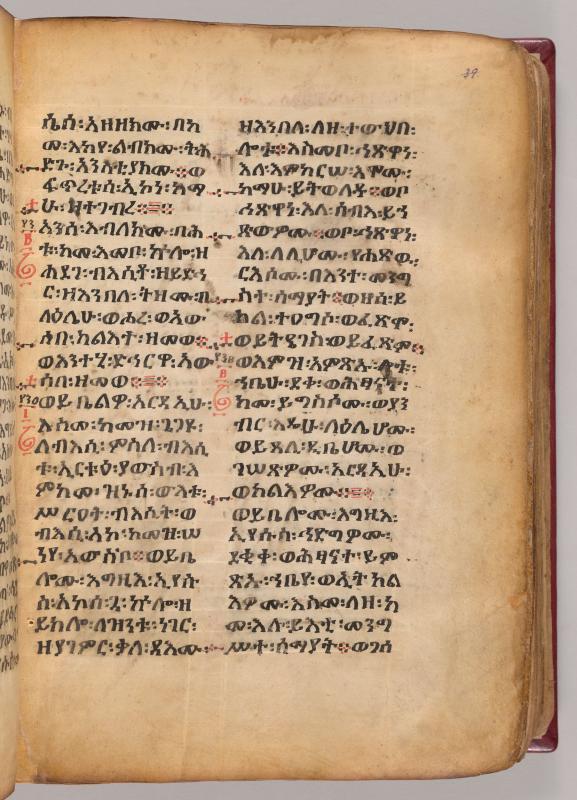 39
ሴሰ፡አዘዘክሙ፡በከ
መ፡እከየ፡ልብክሙ፡ትኅ
ድጉ፡አንስቲያክሙ፨ወ
ፍጥረቱሰ፡ኢኮነ፡ከማ
ሁ፡ዘተገብረ፨
አንሰ፡እብለክሙ፡በሕ
ቱ፡ከመ፡እመቦ፡ኵሎ፡ዘ
ሐደገ፡ብእሲቶ፡ዘይድኅ
ር፡ዘእንበለ፡ትዘሙ፡በ
ላዕሌሁ፡ወሐረ፡ወአው
ሰበ፡ካልእተ፡ዘመወ፨
ወእንተሂ፡ድኅርዋ፡አው
ሰበ፡ዘመወ፨
ወይቤልዎ፡አርዳኢሁ፡
እስመ፡ከመዝ፡ጌገዩ፡
ለብእሲ፡ምስለ፡ብእሲ
ቱ፡ኢርቱዕ፡ያወስብ፡እ
ምከመ፡ዝኑሰ፡ውእቱ፡
ሥርዐተ፡ብእሲት፡ወ
ብእሲ፡እከ፡ከመዝ፡ሠ
ነየ፡አውስቦ፨ወይቤ
ሎሙ፡እግዚእ፡ኢየሱ
ስ፡አኮሰ፡ኵሎ፡ዘ
ይክሎ፡ለዝንቱ፡ነገር፡
ዘያገምር፡ቃለ፡ዳእሙ፨
ዘእንበለ፡ለዘ፡ተውህበ፡
ሎቱ፨እስመቦ፡ኅጽዋነ፡
እለ፡እምከርሠ፡እሞሙ፡
ከማሁ፡ይትወለዱ፨ወቦ
ኅጽዋነ፡እለ፡ሰብእ፡ይኀ
ጽውዎሙ፨ወቦ፡ኅጽዋነ፡
እለ፡ለሊሆሙ፡የሐጽዉ፡
ርእሶሙ፡በእንተ፡መንግ
ስተ፡ሰማያት፨ወዘሰ፡ይ
ክል፡ተዐግሶ፡ወፈጽሞ፡
ወይትዔገስ፡ወይፈጽም፨
ወእምዝ፡አምጽኡ፡ሎቱ፡
ኀቤሁ፡ደቀ፡ወሕፃናተ፡
ከመ፡ይግስሶሙ፡ወያን
ብር፡እዴሁ፡ላዕሌሆሙ፡
ወይጸሊ፡ዲቤሆሙ፡ወ
ገሠጽዎሙ፡አርዳኢሁ፡
ወከልእዎሙ፨
ወይቤሎሙ፡እግዚእ፡
ኢየሱስ፡ኅድግዎሙ፡
ደቂቀ፡ወሕፃናተ፡ይም
ጽኡ፡ኀቤየ፡ወኢትክል
እዎሙ፡እስመ፡ለዘ፡ከ
መ፡እሉ፡ይእቲ፡መንግ
ሥተ፡ሰማያት፨ወገሰ